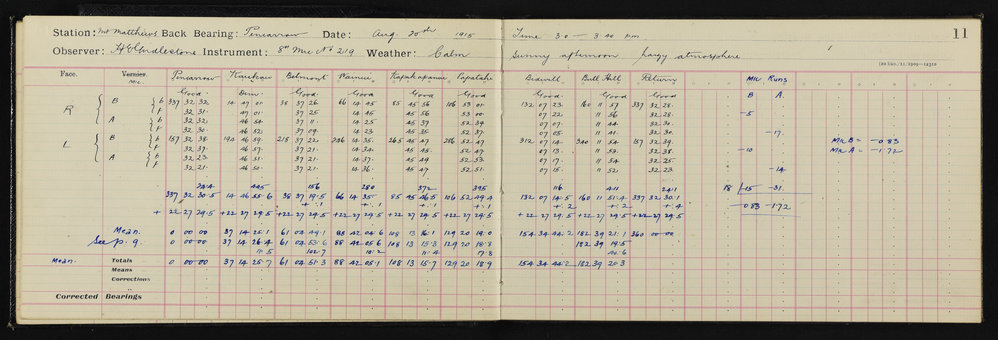 Station: Mt Matthews Back Bearing: Pencarrow Date: Aug 20th 1915 Time 3.0 — 3.40 pm 11
Observer: Instrument: 8" Mic No 219 Weather: Calm Sunny afternoon hazy atmosphere
Face. Vernier. Pencarrow Kaukau Belmont Papatahi Bull Hill Return Mic Runs
Good. Dim. Good. Good. Good. Good. Good. Good. Good. B A
R B b 337 32 32. 14 47 01 38 37 26 66 14 45 85 45 56 106 53 01 132 07 23. 160 11 57 337 32 28.
f 32 31. 47 01. 37 25 14 45 45 56 53 00. 07 22 11 56 32 28. -5
A b 32 32. 46 54 37 11. 14 25 45 37 52 34 07 07. 11 44 32 30.
f 32 30. 46 52. 37 09. 14 23 45 35 52 37. 07 05. 11 41. 32 30. -17.
L B b 157 32 38. 194 46 59 218 37 22 246 14 35. 265 45 47 286 52 47 312 07 14 340 11 54 157 32 39. Mic B = -0.83
f 32 37. 46 57 37 21. 14 34. 45 45 52 47 07 13. 11 52. 32 38. -10 Mic A = -1.72
A b 32 23. 46 51. 37 21. 14 37. 45 49 52 53. 07 17. 11 54 32 25.
f 32 21. 46 50. 37 21. 14 36. 45 47 52 51. 07 15. 11 52. 32 23. -14
244 445 156 280 372 395 116 411 241 18 -15 -31.
337 32 30.5 14 46 55.6 38 37 19.5 66 14 35 85 45 46.5 106 52 49.4 132 07 14.5 160 11 51.4 337 32 30.1
+.1 +.1 +.1 +.1 +.2 +.2 +.4 -0.83 -1.72
+ 22 27 29.5 +22 27 29.5 +22 27 29.5 +22 27 29.5 +22 27 29.5 +22 27 29.5 +22 27 29.5 +22 27 29.5 +22 27 29.5
Mean. 0 00 00 37 14 25.1 61 04 49.1 88 42 04.6 108 13 16.1 129 20 19.0 154 34 44.2 182 39 21.1 360 00 00
See p. 9. 0 00 00 37 14 26.4 61 04 53.6 88 42 05.6 108 13 15.3 129 20 18.8 182 39 19.5
11.5 102.7 10.2 11.4 17.8 40.6
Mean. Totals 0 00 00 37 14 25.7 61 04 51.3 88 42 05.1 108 13 15.7 129 20 18.9 154 34 44.2 182 39 20.3
Means
Corrections
Corrected Bearings